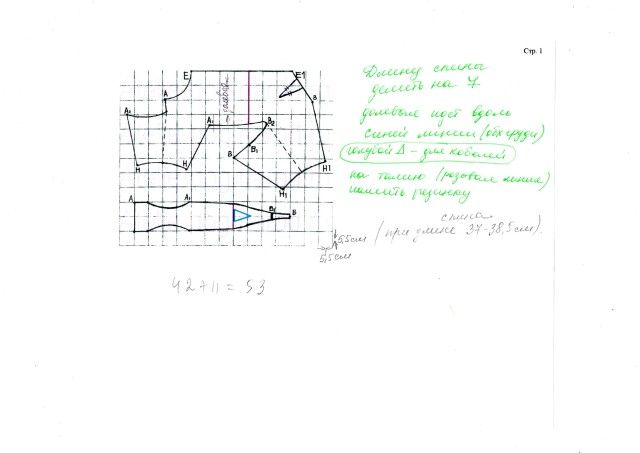 Стр. 1
Длину спины
делить на 7
долевые идут вдоль
синей линии (обх груди)
голубой Δ - для кобелей
на талию (розовая линия)
нашить резинку
спина
(при длине 37-38,5 см).
5,5см
5,5см
42+11 = 53
E
E1
A
A1
B
B2
A1
B1
B
H
H
H1
H1
A
A1
B1
B